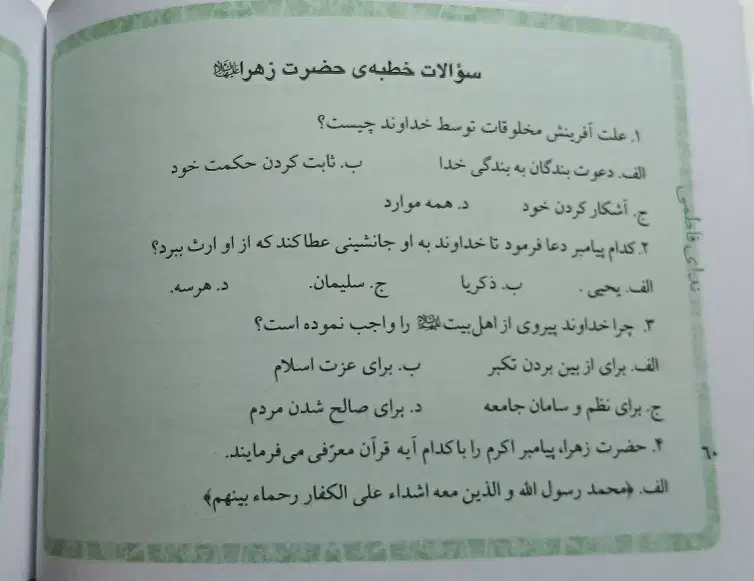 سؤالات خطبه‌ی حضرت زهرا علیهاالسلام
۱. علت آفرینش مخلوقات توسط خداوند چیست؟
الف. دعوت بندگان به بندگی خدا ب. ثابت کردن حکمت خود
ج. آشکار کردن خود د. همه موارد
۲. کدام پیامبر دعا فرمود تا خداوند به او جانشینی عطا کند که از او ارث ببرد؟
الف. یحیی . ب. ذکریا ج. سلیمان. د. هرسه.
۳. چرا خداوند پیروی از اهل‌بیت علیهم‌السلام را واجب نموده است؟
الف. برای از بین بردن تکبر ب. برای عزت اسلام
ج. برای نظم و سامان جامعه د. برای صالح شدن مردم
۴. حضرت زهرا، پیامبر اکرم را با کدام آیه قرآن معرّفی می‌فرمایند.
الف. ﴿محمد رسول الله و الذین معه اشداء علی الکفار رحماء بینهم﴾
ندای فاطمی
۶۰